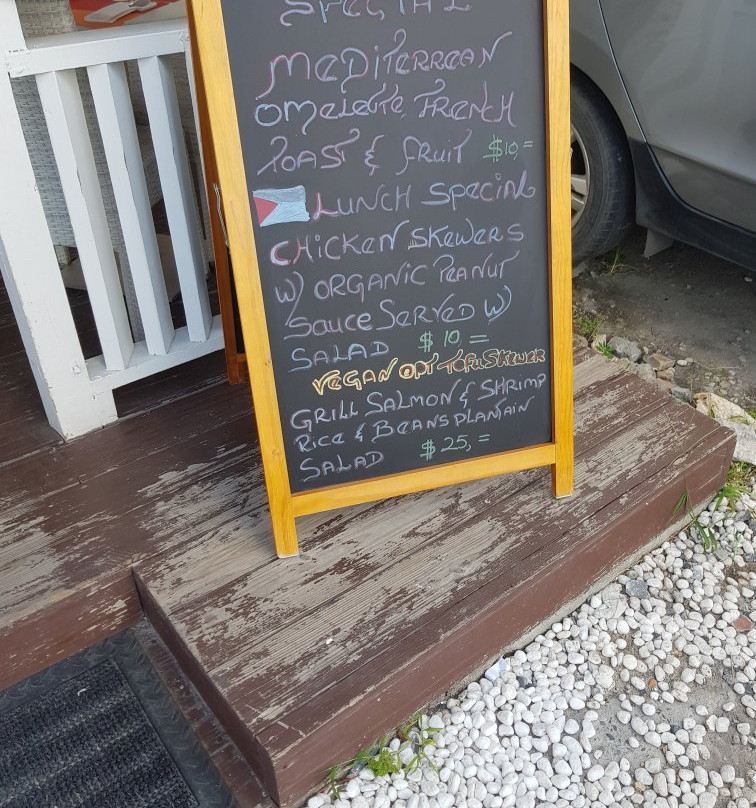 SPECIAL
MEDITERREAN
OMELETTE, FRENCH
TOAST & FRUIT $10,=
LUNCH SPECIAL
CHICKEN SKEWERS
W) ORGANIC PEANUT
SAUCE SERVED W)
SALAD $10,=
VEGAN OPT TOFU SKEWER
GRILL SALMON & SHRIMP
RICE & BEANS PLANTAIN
SALAD $25,=